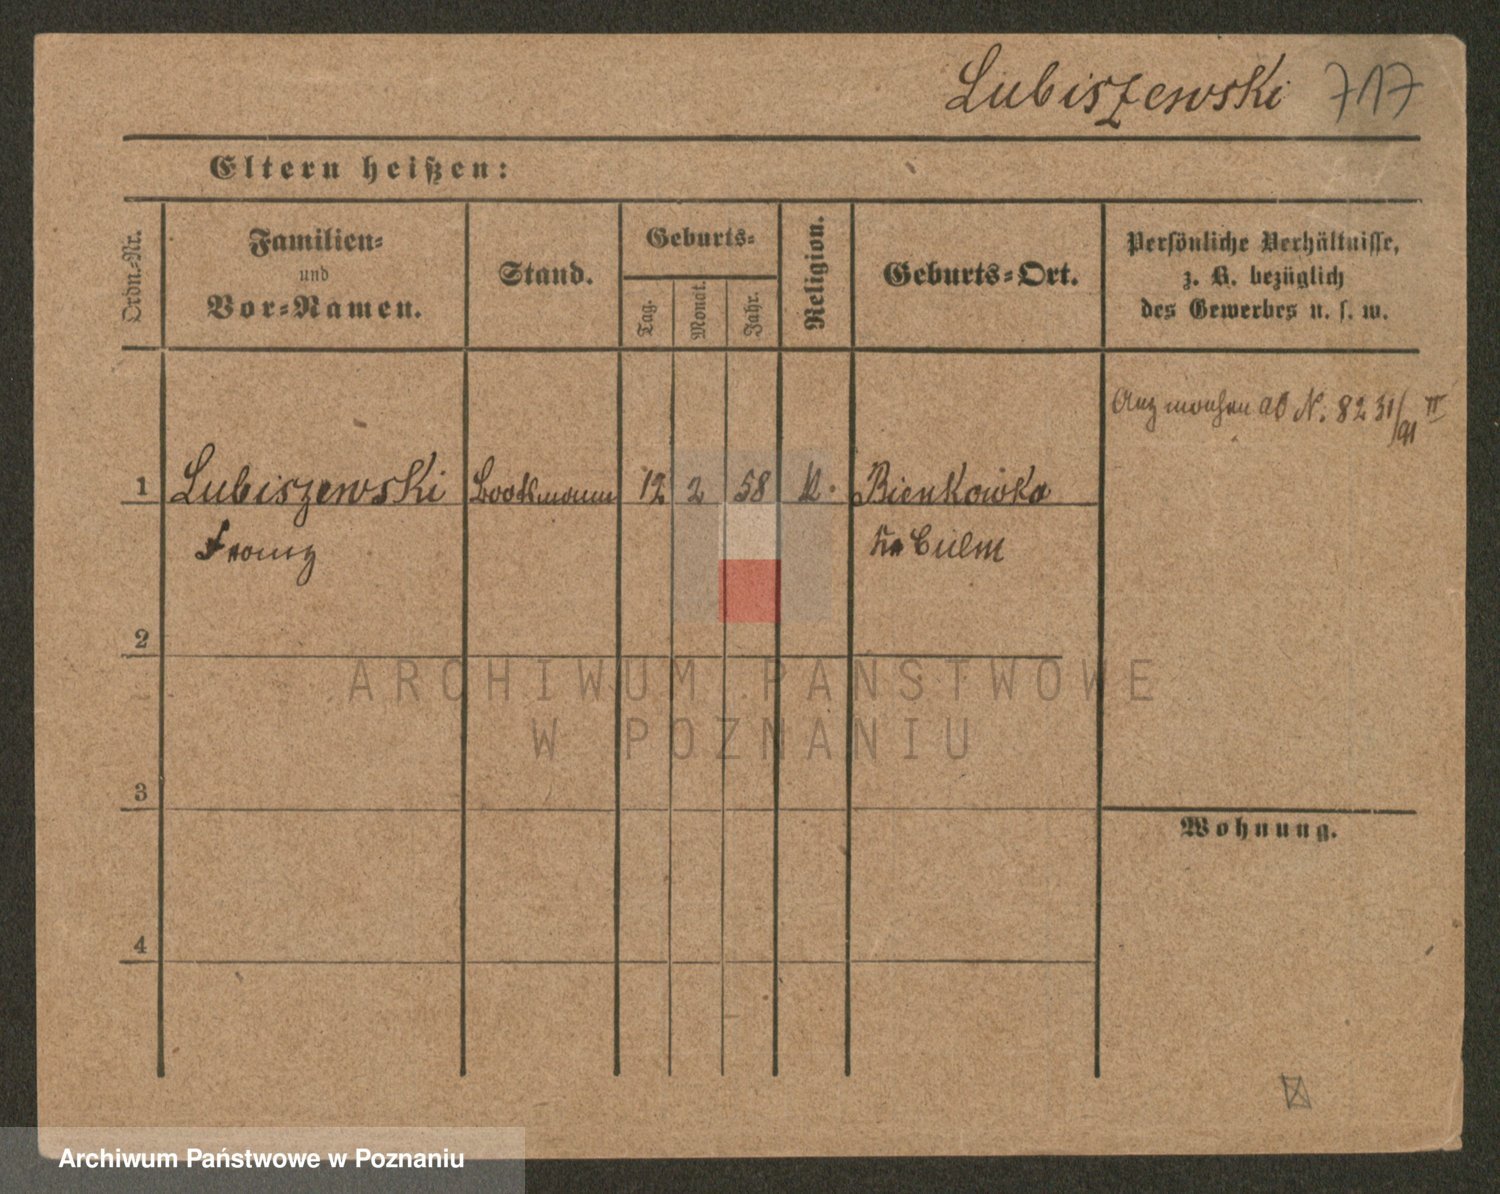 Lubiszewski 717
Eltern heißen:
Ordn.-Nr.
Familien-
und
Vor-Namen.
Stand.
Geburts-
Tag.
Monat.
Jahr.
Religion.
Geburts-Ort.
Persönliche Verhältnisse,
z. B. bezüglich
des Gewerbes u. s. w.
ab N. 82 31/91 II
1 Lubiszewski Bootsmann 12 2 58 K. Bienkowka
Franz Kr Culm
2
3
Wohnung.
4
ARCHIWUM PAŃSTWOWE
W POZNANIU
Archiwum Państwowe w Poznaniu